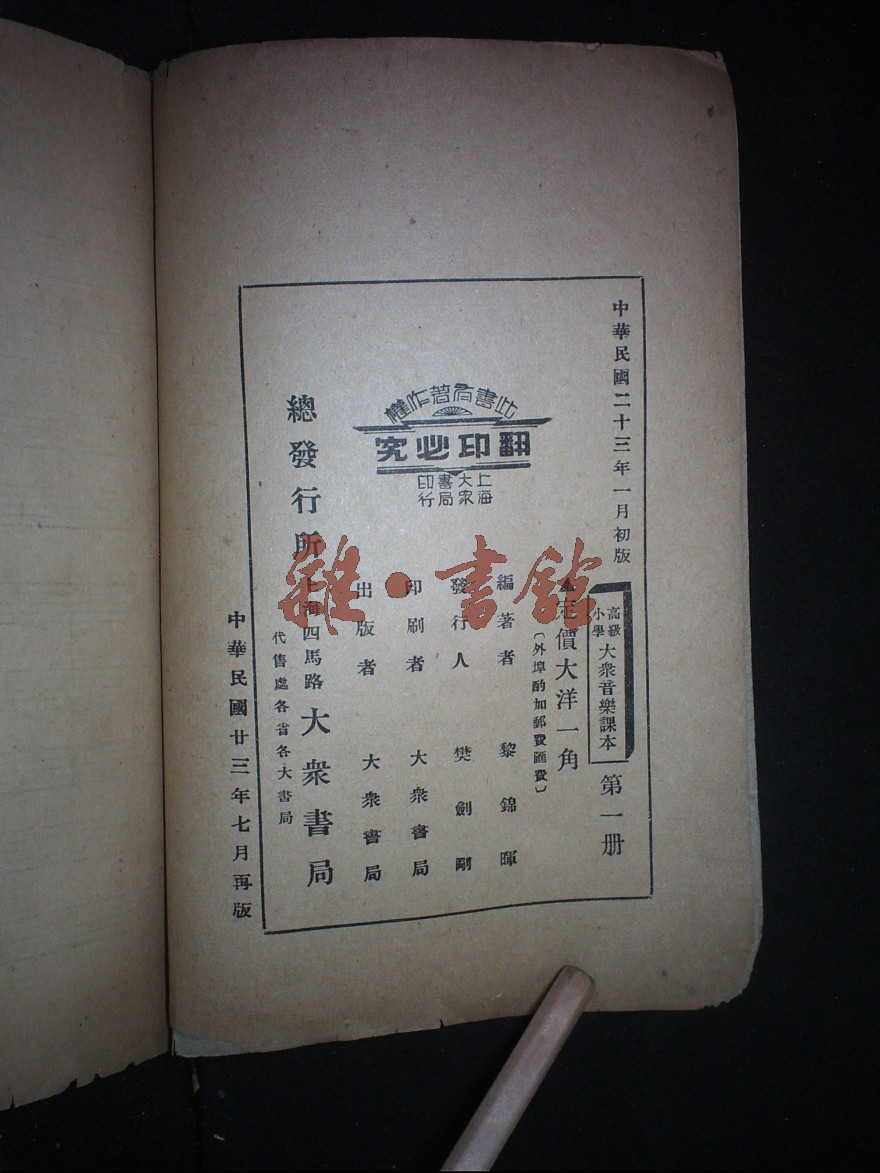 中華民國二十三年一月初版
高級小學 大衆音樂課本 第一册
定價大洋一角
〔外埠酌加郵費匯費〕
編著者 黎錦暉
發行人 樊劍剛
印刷者 大衆書局
出版者 大衆書局
此書有著作權
翻印必究
上海
大衆
書局
印行
總發行所 上海四馬路 大衆書局
代售處各省各大書局
中華民國廿三年七月再版
雜·書館